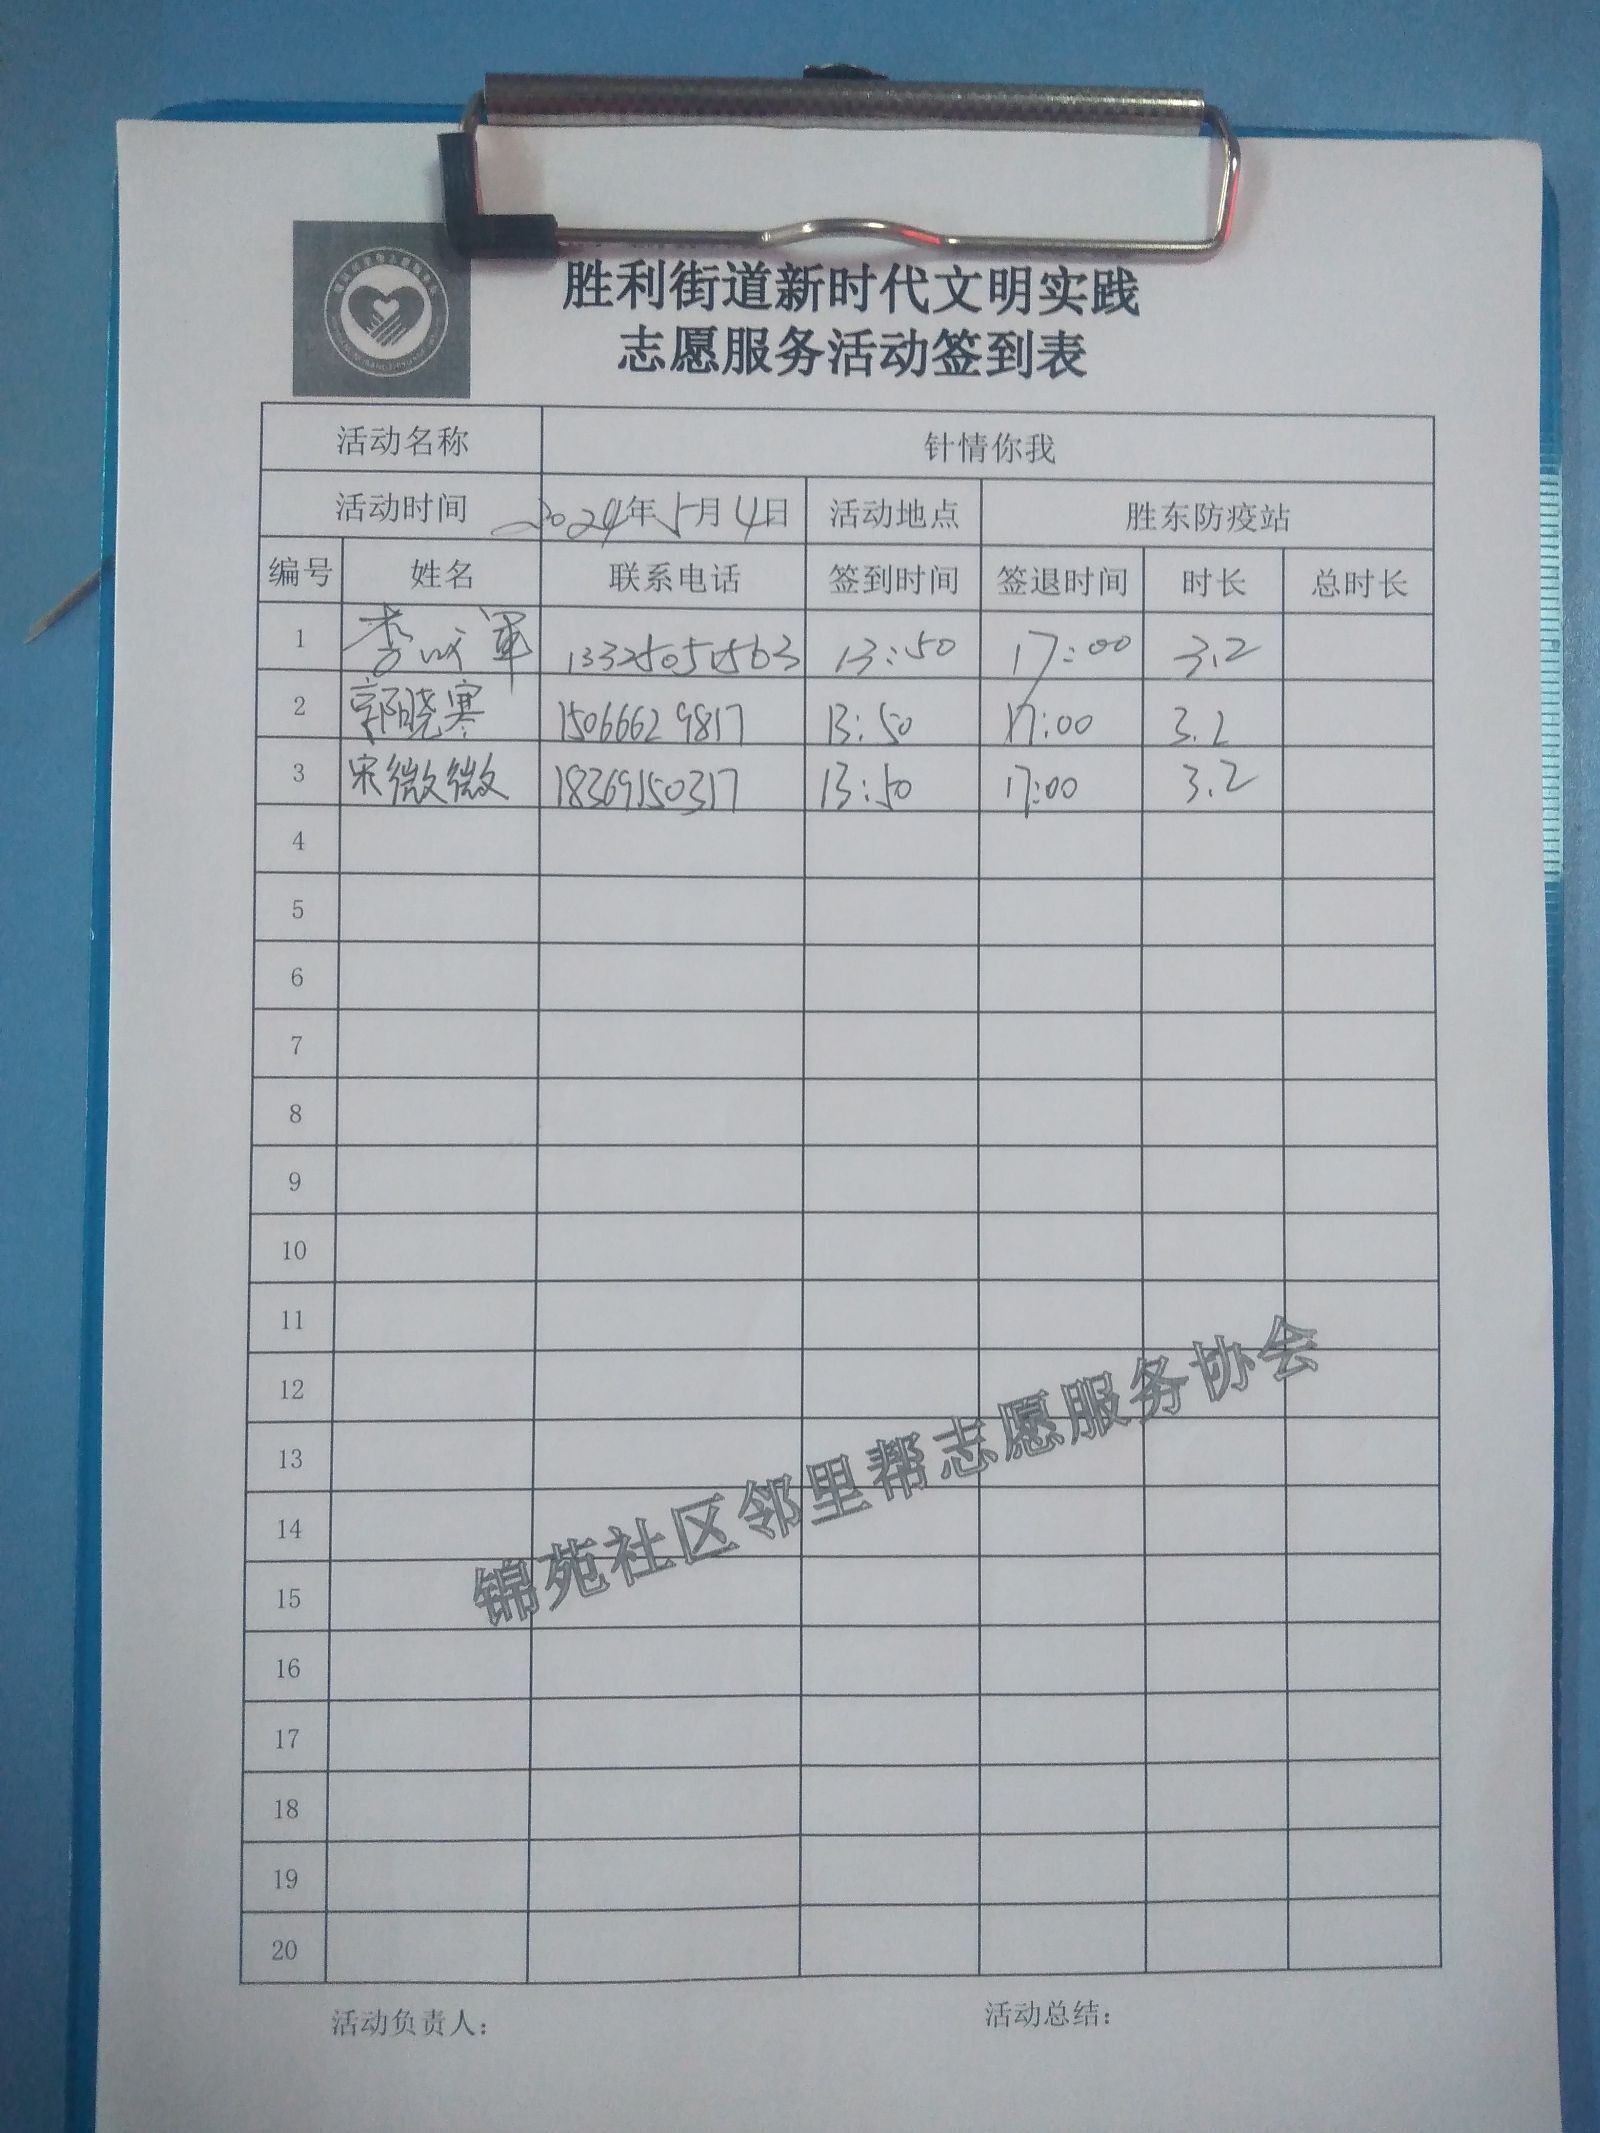 胜利街道新时代文明实践
志愿服务活动签到表
活动名称 针情你我
活动时间 2024年5月4日 活动地点 胜东防疫站
编号 姓名 联系电话 签到时间 签退时间 时长 总时长
1 李 军 13325051563 13:50 17:00 3.2
2 郭晓寒 15066629817 13:50 17:00 3.2
3 宋微微 18369150317 13:50 17:00 3.2
4
5
6
7
8
9
10
11
12
13
14
15
16
17
18
19
20
锦苑社区邻里帮志愿服务协会
活动负责人: 活动总结: